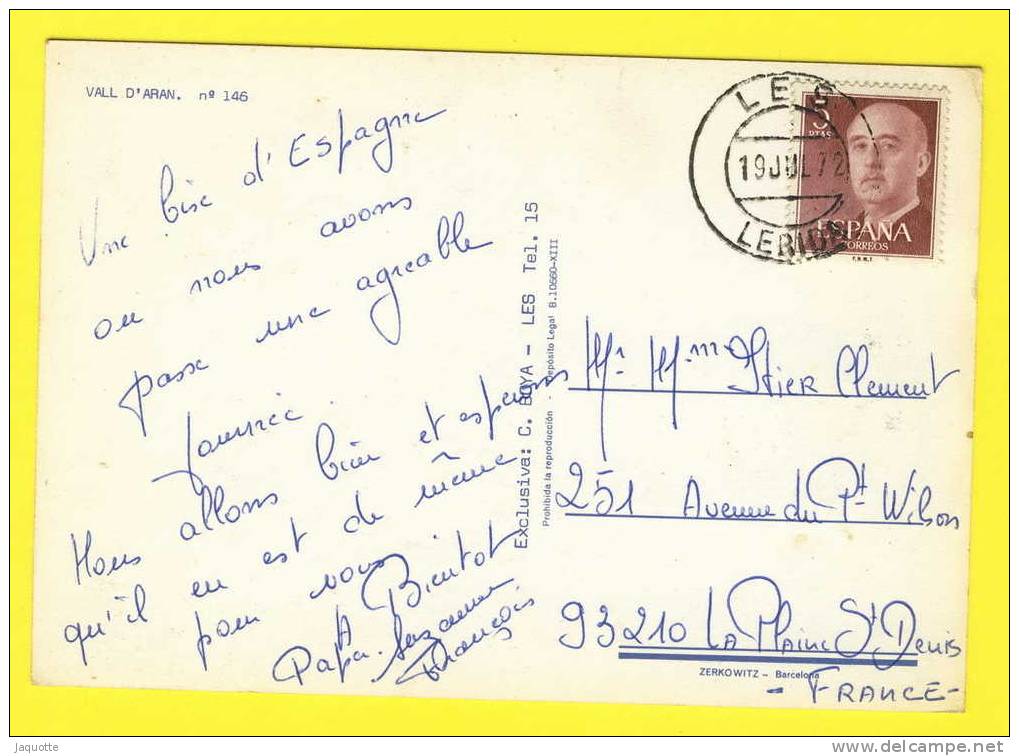 VALL D'ARAN. nº 146
Une bise d'Espagne
ou nous avons
passe une agreable
Journée.
Nous allons bien et esperons
qu'il en est de même
pour vous.
A Bientot
Papa. Suzanne
François
Exclusiva: C. BOYA – LES Tel. 15
Prohibida la reproducción - Depósito Legal B.10660-XIII
LES
19 JUL 72
LERIDA
5
PTAS
ESPAÑA
CORREOS
Mr Mme Clement
251 Avenue du Pt Wilson
93210 La Plaine St Denis
- FRANCE -
ZERKOWITZ - Barcelona
Jaquotte
www.delcampe.net